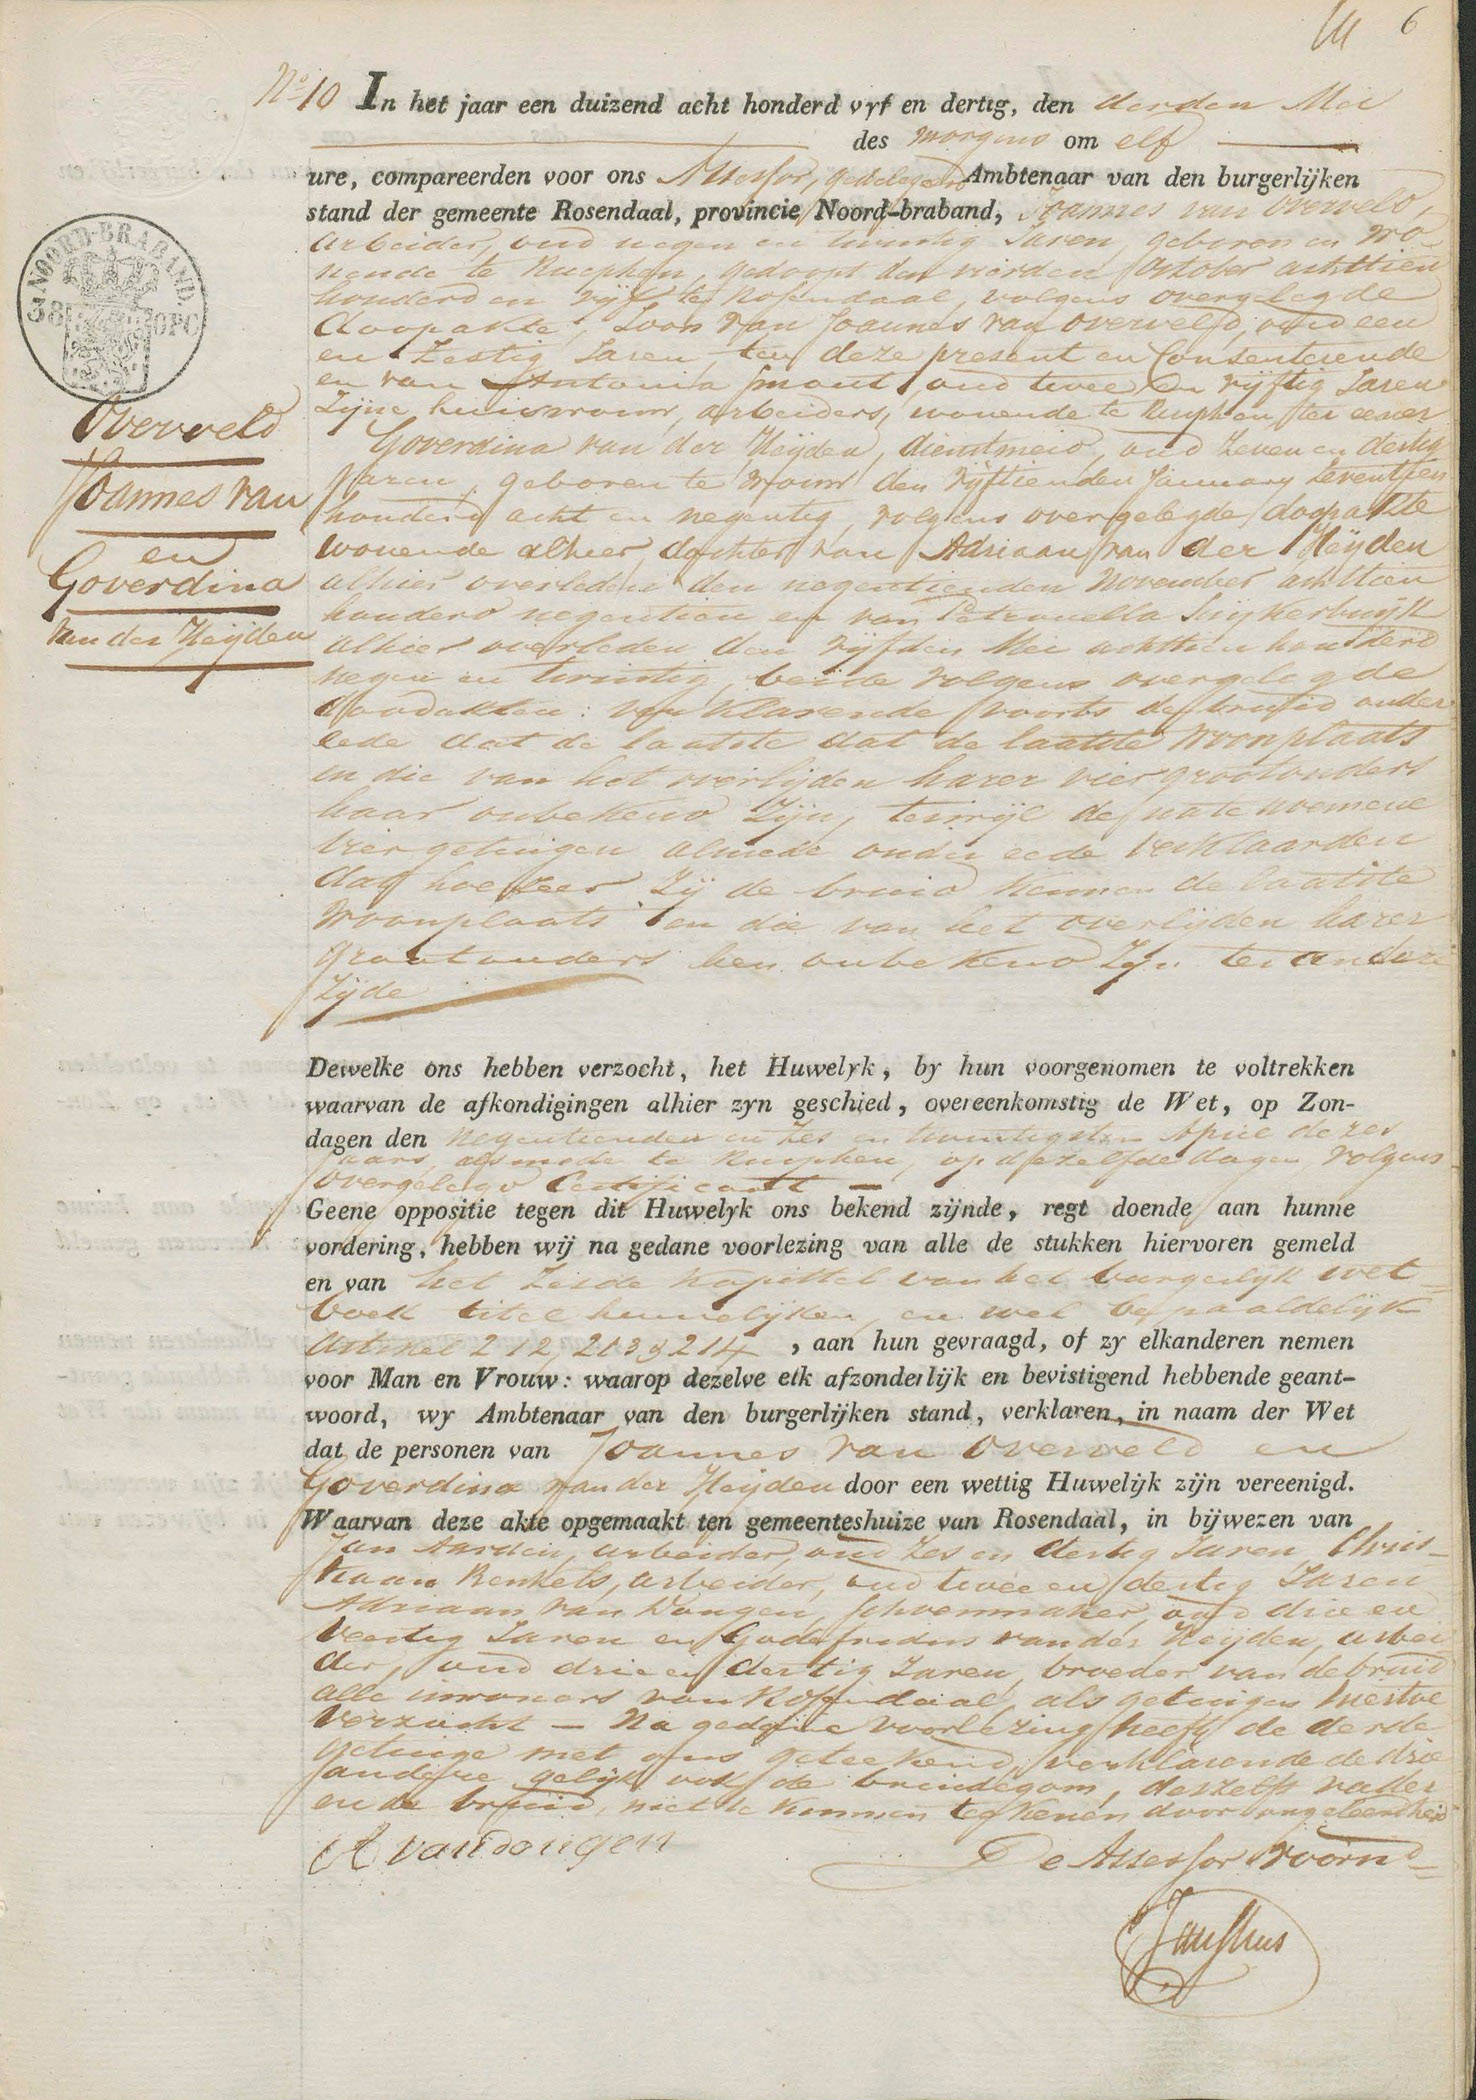 6
No 10 In het jaar een duizend acht honderd vyf en dertig, den derden Mei
des morgens om elf
ure, compareerden voor ons Assessor, gedelegeerd Ambtenaar van den burgerlijken
stand der gemeente Rosendaal, provincie Noord-braband, Joannes van Overveld,
arbeider, oud negen en twintig Jaren, geboren en wo-
nende te Rucphen, gedoopt den vierden October achttien
honderd en vijf te Rosendaal, volgens overgelegde
doopakte: Zoon van Joannes van Overveld, oud een
en Zestig Jaren, ten deze present en Consenterende
en van Antonia Smout, oud twee en vijftig Jaren
Zijne huisvrouw, arbeiders, wonende te Rucphen, ter eener
Goverdina van der Heijden, dienstmeid, oud Zeven en dertig
Jaren, geboren te Wouw den vijftienden January Zeventien
honderd acht en negentig, volgens overgelegde doopakte
wonende alhier, dochter van Adriaan van der Heijden
alhier overleden den negentienden November achttien
honderd negentien en van Petronella Suijkerbuijk
alhier overleden den vijfden Mei achttien honderd
negen en twintig, beide volgens overgelegde
doodakten: verklarende voorts de bruid onder
eede dat de laatste dat de laatste woonplaats
en die van het overlijden harer vier grootouders
haar onbekend Zijn, terwijl de nate noemene
vier getuigen almede onder eede verklaarden
dat hoe Zeer Zij de bruid kennen de laatste
woonplaats en die van het overlijden harer
grootouders hen onbekend Zijn ter andere
Zijde
NOORD-BRABAND.
38 OPC
Overveld
Joannes van
en
Goverdina
van der Heijden
Dewelke ons hebben verzocht, het Huwelyk, by hun voorgenomen te voltrekken
waarvan de afkondigingen alhier zyn geschied, overeenkomstig de Wet, op Zon-
dagen den negentienden en Zes en twintigsten April dezes
Jaars, alsmede te Rucphen, op dezelfde dagen, volgens
overgelegd Certificaat
Geene oppositie tegen dit Huwelyk ons bekend zijnde, regt doende aan hunne
vordering, hebben wij na gedane voorlezing van alle de stukken hiervoren gemeld
en van het Zesde Kapittel van het burgerlijk wet-
boek titel huwelijken, en wel bepaaldelijk
Artikel 212, 213 & 214, aan hun gevraagd, of zy elkanderen nemen
voor Man en Vrouw: waarop dezelve elk afzonderlijk en bevistigend hebbende geant-
woord, wy Ambtenaar van den burgerlijken stand, verklaren, in naam der Wet
dat de personen van Joannes van Overveld en
Goverdina van der Heijden door een wettig Huwelijk zijn vereenigd.
Waarvan deze akte opgemaakt ten gemeenteshuize van Rosendaal, in bijwezen van
Jan Aarden, arbeider, oud Zes en dertig Jaren, Chris-
tiaan Renkels, arbeider, oud twee en dertig Jaren
Adriaan van Dongen, schoenmaker, oud drie en
veertig Jaren en Godefridus van der Heijden, arbei-
der, oud drie en dertig Jaren, broeder van de bruid
alle inwoners van Rosendaal, als getuigen hiertoe
verzocht — Na gedane voorlezing heeft de derde
getuige met ons geteekend, verklarende de drie
andere gelijk ook de bruidegom, deszelfs vader
en de bruid, niet te kunnen teekenen door ongeleerdheid
A van dongen
De Assessor voornd